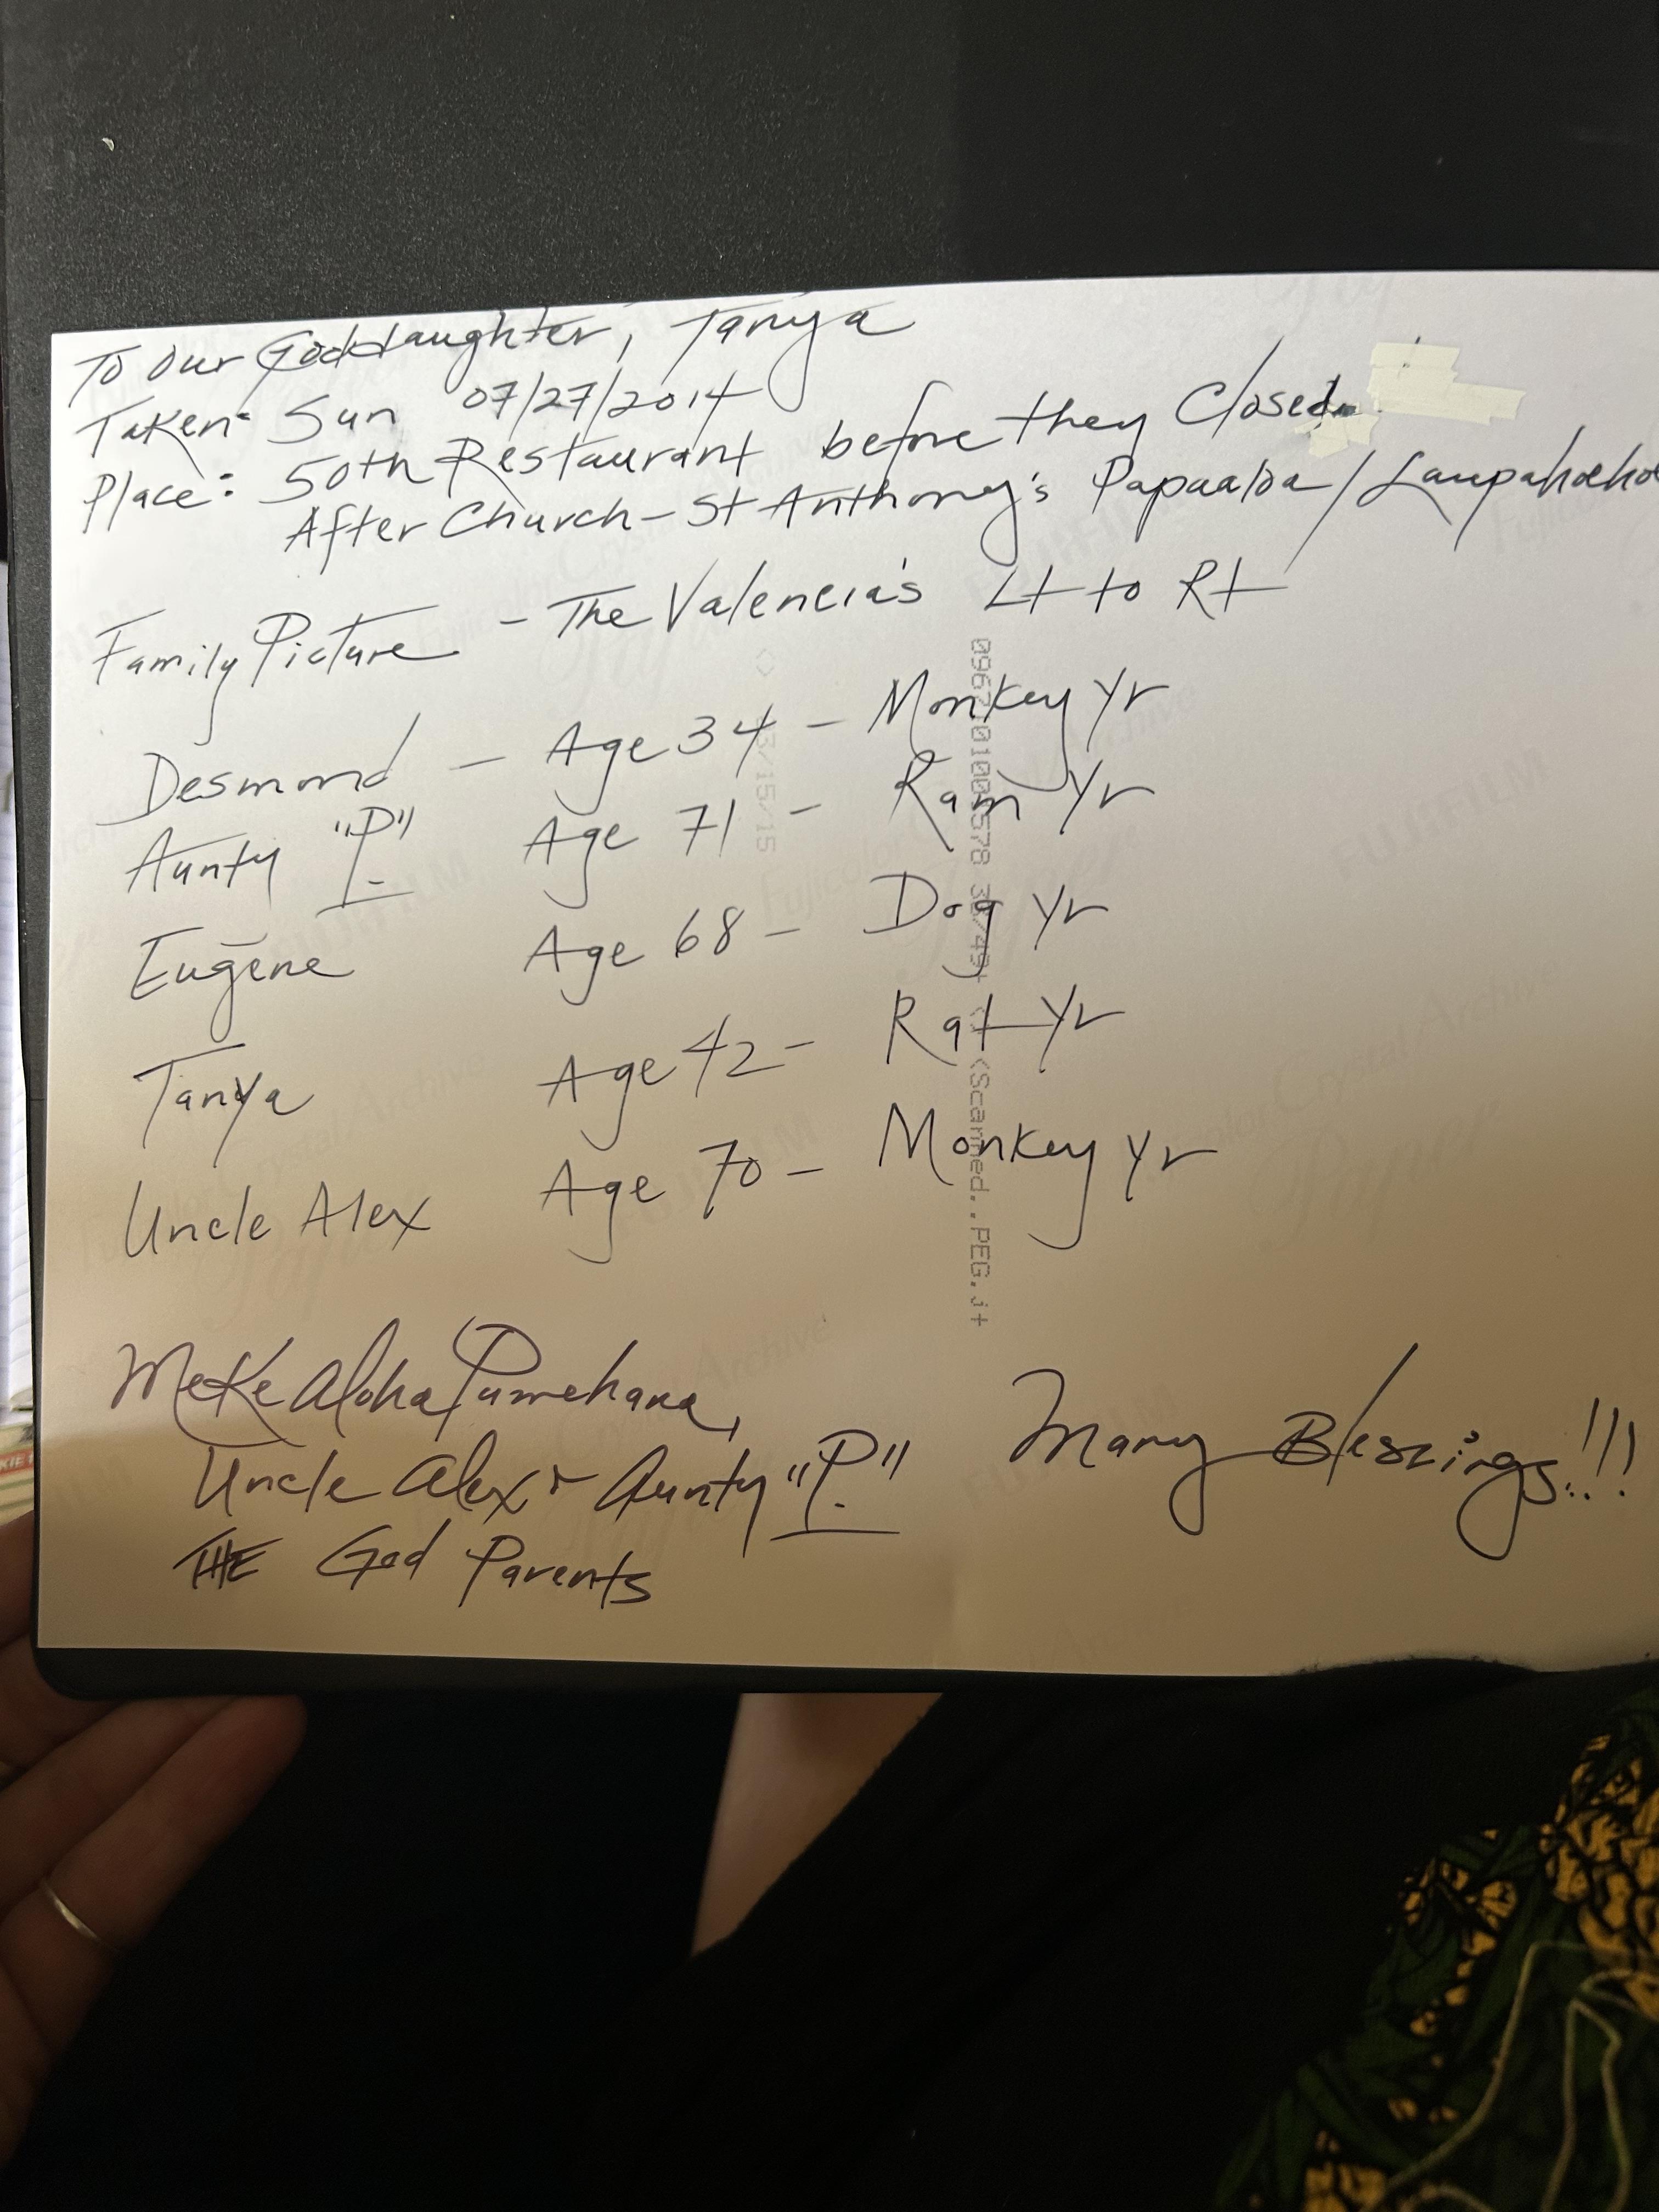 To Our Goddaughter, Tanya
Taken: Sun 07/27/2014
Place: 50th Restaurant before they Closed.
After Church - St Anthony's Papaaloa / Laupahoeho
Family Picture - The Valencia's Lt to Rt
Desmond - Age 34 - Monkey Yr
Aunty "P" Age 71 - Ram Yr
Eugene Age 68 - Dog Yr
Tanya Age 42 - Rat Yr
Uncle Alex Age 70 - Monkey Yr
Me Ke Aloha Pumehana,
Uncle Alex & Aunty "P."
THE God Parents
Many Blessings!!!
03/15/15
<Scanned..PEG.j+
Fujicolor Crystal Archive
FUJIFILM